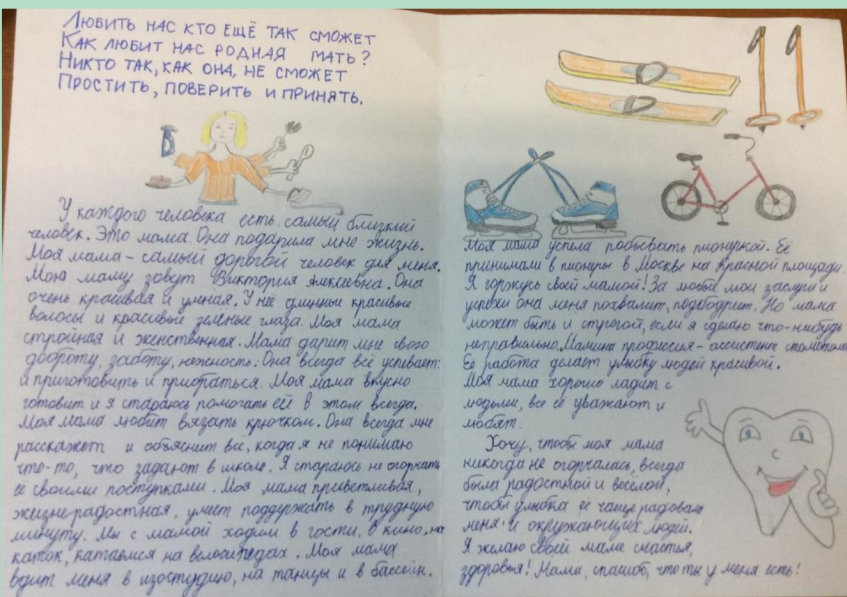 Любить нас кто ещё так сможет
Как любит нас родная мать?
Никто так, как она, не сможет
Простить, поверить и принять.
У каждого человека есть самый близкий
человек. Это мама. Она подарила мне жизнь.
Моя мама – самый дорогой человек для меня.
Мою маму зовут Виктория Алексеевна. Она
очень красивая и умная. У неё длинные красивые
волосы и красивые зелёные глаза. Моя мама
стройная и женственная. Мама дарит мне свою
доброту, заботу, нежность. Она всегда всё успевает:
и приготовить и прибраться. Моя мама вкусно
готовит и я стараюсь помогать ей в этом всегда.
Моя мама любит вязать крючком. Она всегда мне
расскажет и объяснит все, когда я не понимаю
что-то, что задают в школе. Я стараюсь не огорчать
её своими поступками. Моя мама приветливая,
жизнерадостная, умеет поддержать в трудную
минуту. Мы с мамой ходим в гости, в кино, на
каток, катаемся на велосипедах. Моя мама
водит меня в изостудию, на танцы и в бассейн.
Моя мама успела побывать пионеркой. Её
принимали в пионеры в Москве на Красной площади.
Я горжусь своей мамой! За любые мои заслуги и
успехи она меня похвалит, подбодрит. Но мама
может быть и строгой, если я сделаю что-нибудь
неправильно. Мамина профессия – ассистент стоматолога
Её работа делает улыбку людей красивой.
Моя мама хорошо ладит с
людьми, все её уважают и
любят.
Хочу, чтобы моя мама
никогда не огорчалась, всегда
была радостной и весёлой,
чтобы улыбка её чаще радовала
меня и окружающих людей.
Я желаю своей маме счастья,
здоровья! Мама, спасибо, что ты у меня есть!